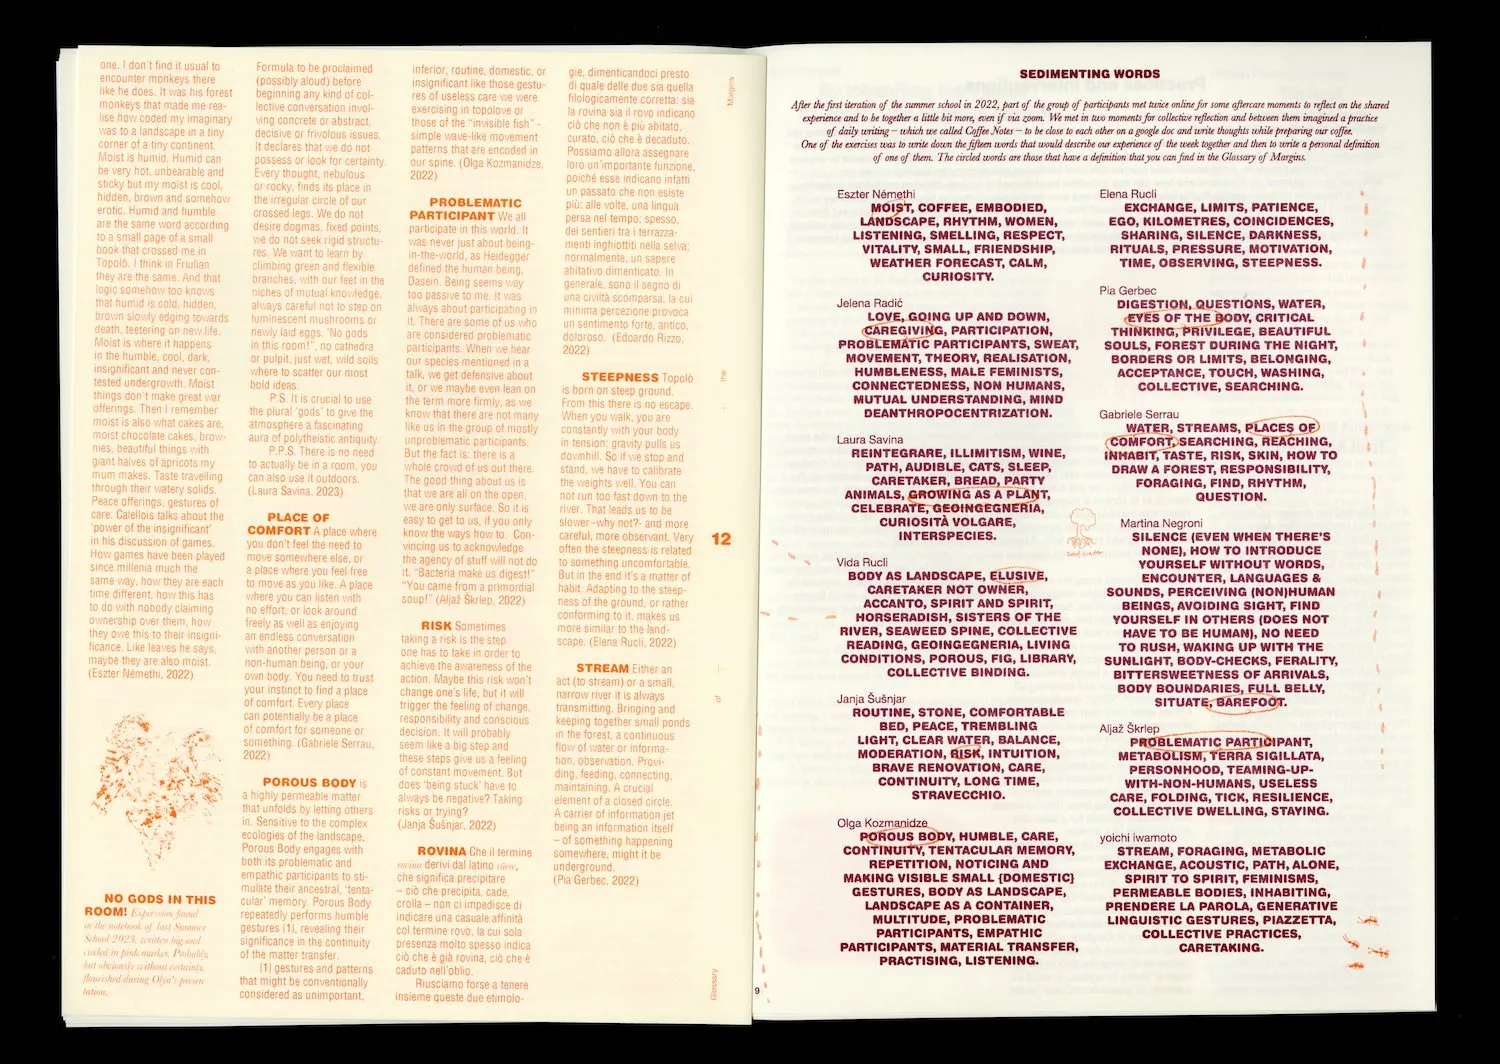 one. I don't find it usual to
encounter monkeys there
like he does. It was his forest
monkeys that made me rea-
lise how coded my imaginary
was to a landscape in a tiny
corner of a tiny continent.
Moist is humid. Humid can
be very hot, unbearable and
sticky but my moist is cool,
hidden, brown and somehow
erotic. Humid and humble
are the same word according
to a small page of a small
book that crossed me in
Topolò. I think in Friulian
they are the same. And that
logic somehow too knows
that humid is cold, hidden,
brown slowly edging towards
death, teetering on new life.
Moist is where it happens
in the humble, cool, dark,
insignificant and never con-
tested undergrowth. Moist
things don't make great war
offerings. Then I remember
moist is also what cakes are,
moist chocolate cakes, brow-
nies, beautiful things with
giant halves of apricots my
mum makes. Taste travelling
through their watery solids.
Peace offerings, gestures of
care. Calellois talks about the
'power of the insignificant'
in his discussion of games.
How games have been played
since millenia much the
same way, how they are each
time different, how this has
to do with nobody claiming
ownership over them, how
they owe this to their insigni-
ficance. Like leaves he says,
maybe they are also moist.
(Eszter Némethi, 2022)
NO GODS IN THIS
ROOM! Expression found
in the notebook of last Summer
School 2023, written big and
circled in pink marker. Probably,
but obviously without certainty,
flourished during Olya's presen
tation.
Formula to be proclaimed
(possibly aloud) before
beginning any kind of col-
lective conversation invol-
ving concrete or abstract,
decisive or frivolous issues.
It declares that we do not
possess or look for certainty.
Every thought, nebulous
or rocky, finds its place in
the irregular circle of our
crossed legs. We do not
desire dogmas, fixed points,
we do not seek rigid structu-
res. We want to learn by
climbing green and flexible
branches, with our feet in the
niches of mutual knowledge,
always careful not to step on
luminescent mushrooms or
newly laid eggs. "No gods
in this room!", no cathedra
or pulpit, just wet, wild soils
where to scatter our most
bold ideas.
P.S. It is crucial to use
the plural 'gods' to give the
atmosphere a fascinating
aura of polytheistic antiquity.
P.P.S. There is no need
to actually be in a room, you
can also use it outdoors.
(Laura Savina, 2023)
PLACE OF
COMFORT A place where
you don't feel the need to
move somewhere else, or
a place where you feel free
to move as you like. A place
where you can listen with
no effort, or look around
freely as well as enjoying
an endless conversation
with another person or a
non-human being, or your
own body. You need to trust
your instinct to find a place
of comfort. Every place
can potentially be a place
of comfort for someone or
something. (Gabriele Serrau,
2022)
POROUS BODY is
a highly permeable matter
that unfolds by letting others
in. Sensitive to the complex
ecologies of the landscape,
Porous Body engages with
both its problematic and
empathic participants to sti-
mulate their ancestral, 'tenta-
cular' memory. Porous Body
repeatedly performs humble
gestures (1), revealing their
significance in the continuity
of the matter transfer.
(1) gestures and patterns
that might be conventionally
considered as unimportant,
inferior, routine, domestic, or
insignificant like those gestu-
res of useless care we were
exercising in topolove or
those of the "invisible fish" -
simple wave-like movement
patterns that are encoded in
our spine. (Olga Kozmanidze,
2022)
PROBLEMATIC
PARTICIPANT We all
participate in this world. It
was never just about being-
in-the-world, as Heidegger
defined the human being,
Dasein. Being seems way
too passive to me. It was
always about participating in
it. There are some of us who
are considered problematic
participants. When we hear
our species mentioned in a
talk, we get defensive about
it, or we maybe even lean on
the term more firmly, as we
know that there are not many
like us in the group of mostly
unproblematic participants.
But the fact is: there is a
whole crowd of us out there.
The good thing about us is
that we are all on the open,
we are only surface. So it is
easy to get to us, if you only
know the ways how to. Con-
vincing us to acknowledge
the agency of stuff will not do
it. "Bacteria make us digest!"
"You came from a primordial
soup!" (Aljaž Škrlep, 2022)
RISK Sometimes
taking a risk is the step
one has to take in order to
achieve the awareness of the
action. Maybe this risk won't
change one's life, but it will
trigger the feeling of change,
responsibility and conscious
decision. It will probably
seem like a big step and
these steps give us a feeling
of constant movement. But
does 'being stuck' have to
always be negative? Taking
risks or trying?
(Janja Šušnjar, 2022)
ROVINA Che il termine
rovina derivi dal latino ruere,
che significa precipitare
– ciò che precipita, cade,
crolla – non ci impedisce di
indicare una casuale affinità
col termine rovo, la cui sola
presenza molto spesso indica
ciò che è già rovina, ciò che è
caduto nell'oblio.
Riusciamo forse a tenere
insieme queste due etimolo-
gie, dimenticandoci presto
di quale delle due sia quella
filologicamente corretta: sia
la rovina sia il rovo indicano
ciò che non è più abitato,
curato, ciò che è decaduto.
Possiamo allora assegnare
loro un'importante funzione,
poiché esse indicano infatti
un passato che non esiste
più: alle volte, una lingua
persa nel tempo; spesso,
dei sentieri tra i terrazza-
menti inghiottiti nella selva;
normalmente, un sapere
abitativo dimenticato. In
generale, sono il segno di
una civiltà scomparsa, la cui
minima percezione provoca
un sentimento forte, antico,
doloroso. (Edoardo Rizzo,
2022)
STEEPNESS Topolò
is born on steep ground.
From this there is no escape.
When you walk, you are
constantly with your body
in tension: gravity pulls us
downhill. So if we stop and
stand, we have to calibrate
the weights well. You can
not run too fast down to the
river. That leads us to be
slower -why not?- and more
careful, more observant. Very
often the steepness is related
to something uncomfortable.
But in the end it's a matter of
habit. Adapting to the steep-
ness of the ground, or rather
conforming to it, makes us
more similar to the land-
scape. (Elena Rucli, 2022)
STREAM Either an
act (to stream) or a small,
narrow river it is always
transmitting. Bringing and
keeping together small ponds
in the forest, a continuous
flow of water or informa-
tion, observation. Provi-
ding, feeding, connecting,
maintaining. A crucial
element of a closed circle.
A carrier of information jet
being an information itself
– of something happening
somewhere, might it be
underground.
(Pia Gerbec, 2022)
Margins
the
12
of
Glossary
SEDIMENTING WORDS
After the first iteration of the summer school in 2022, part of the group of participants met twice online for some aftercare moments to reflect on the shared
experience and to be together a little bit more, even if via zoom. We met in two moments for collective reflection and between them imagined a practice
of daily writing – which we called Coffee Notes – to be close to each other on a google doc and write thoughts while preparing our coffee.
One of the exercises was to write down the fifteen words that would describe our experience of the week together and then to write a personal definition
of one of them. The circled words are those that have a definition that you can find in the Glossary of Margins.
Eszter Némethi
MOIST, COFFEE, EMBODIED,
LANDSCAPE, RHYTHM, WOMEN,
LISTENING, SMELLING, RESPECT,
VITALITY, SMALL, FRIENDSHIP,
WEATHER FORECAST, CALM,
CURIOSITY.
Jelena Radić
LOVE, GOING UP AND DOWN,
CAREGIVING, PARTICIPATION,
PROBLEMATIC PARTICIPANTS, SWEAT,
MOVEMENT, THEORY, REALISATION,
HUMBLENESS, MALE FEMINISTS,
CONNECTEDNESS, NON HUMANS,
MUTUAL UNDERSTANDING, MIND
DEANTHROPOCENTRIZATION.
Laura Savina
REINTEGRARE, ILLIMITISM, WINE,
PATH, AUDIBLE, CATS, SLEEP,
CARETAKER, BREAD, PARTY
ANIMALS, GROWING AS A PLANT,
CELEBRATE, GEOINGEGNERIA,
CURIOSITÀ VOLGARE,
INTERSPECIES.
Vida Rucli
BODY AS LANDSCAPE, ELUSIVE,
CARETAKER NOT OWNER,
ACCANTO, SPIRIT AND SPIRIT,
HORSERADISH, SISTERS OF THE
RIVER, SEAWEED SPINE, COLLECTIVE
READING, GEOINGEGNERIA, LIVING
CONDITIONS, POROUS, FIG, LIBRARY,
COLLECTIVE BINDING.
Janja Šušnjar
ROUTINE, STONE, COMFORTABLE
BED, PEACE, TREMBLING
LIGHT, CLEAR WATER, BALANCE,
MODERATION, RISK, INTUITION,
BRAVE RENOVATION, CARE,
CONTINUITY, LONG TIME,
STRAVECCHIO.
Olga Kozmanidze
POROUS BODY, HUMBLE, CARE,
CONTINUITY, TENTACULAR MEMORY,
REPETITION, NOTICING AND
MAKING VISIBLE SMALL (DOMESTIC)
GESTURES, BODY AS LANDSCAPE,
LANDSCAPE AS A CONTAINER,
MULTITUDE, PROBLEMATIC
PARTICIPANTS, EMPATHIC
PARTICIPANTS, MATERIAL TRANSFER,
PRACTISING, LISTENING.
Elena Rucli
EXCHANGE, LIMITS, PATIENCE,
EGO, KILOMETRES, COINCIDENCES,
SHARING, SILENCE, DARKNESS,
RITUALS, PRESSURE, MOTIVATION,
TIME, OBSERVING, STEEPNESS.
Pia Gerbec
DIGESTION, QUESTIONS, WATER,
EYES OF THE BODY, CRITICAL
THINKING, PRIVILEGE, BEAUTIFUL
SOULS, FOREST DURING THE NIGHT,
BORDERS OR LIMITS, BELONGING,
ACCEPTANCE, TOUCH, WASHING,
COLLECTIVE, SEARCHING.
Gabriele Serrau
WATER, STREAMS, PLACES OF
COMFORT, SEARCHING, REACHING,
INHABIT, TASTE, RISK, SKIN, HOW TO
DRAW A FOREST, RESPONSIBILITY,
FORAGING, FIND, RHYTHM,
QUESTION.
Martina Negroni
SILENCE (EVEN WHEN THERE'S
NONE), HOW TO INTRODUCE
YOURSELF WITHOUT WORDS,
ENCOUNTER, LANGUAGES &
SOUNDS, PERCEIVING (NON)HUMAN
BEINGS, AVOIDING SIGHT, FIND
YOURSELF IN OTHERS (DOES NOT
HAVE TO BE HUMAN), NO NEED
TO RUSH, WAKING UP WITH THE
SUNLIGHT, BODY-CHECKS, FERALITY,
BITTERSWEETNESS OF ARRIVALS,
BODY BOUNDARIES, FULL BELLY,
SITUATE, BAREFOOT.
Aljaž Škrlep
PROBLEMATIC PARTICIPANT,
METABOLISM, TERRA SIGILLATA,
PERSONHOOD, TEAMING-UP-
WITH-NON-HUMANS, USELESS
CARE, FOLDING, TICK, RESILIENCE,
COLLECTIVE DWELLING, STAYING.
yoichi iwamoto
STREAM, FORAGING, METABOLIC
EXCHANGE, ACOUSTIC, PATH, ALONE,
SPIRIT TO SPIRIT, FEMINISMS,
PERMEABLE BODIES, INHABITING,
PRENDERE LA PAROLA, GENERATIVE
LINGUISTIC GESTURES, PIAZZETTA,
COLLECTIVE PRACTICES,
CARETAKING.
9